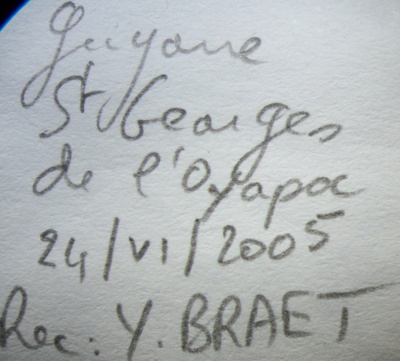 Guyane
St Georges
de l'Oyapoc
24/VI/2005
Rec: Y. BRAET